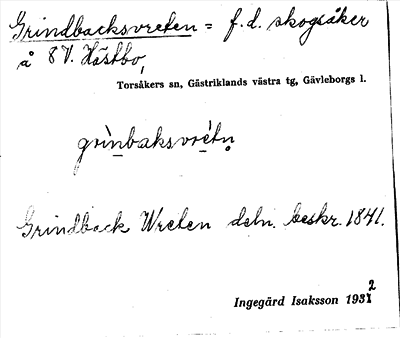 Grindbacksvreten = f.d. skogsåker
å 8 V. Hästbo,
Torsåkers sn, Gästriklands västra tg, Gävleborgs l.
grìnbaksvrétn̥
Grindback Wreten deln. beskr. 1841.
Ingegärd Isaksson 1932